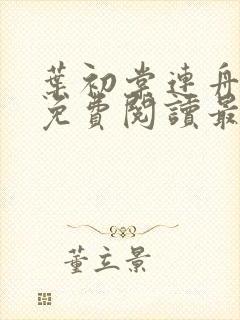 葉初棠連舟
免費閱讀最
董立景